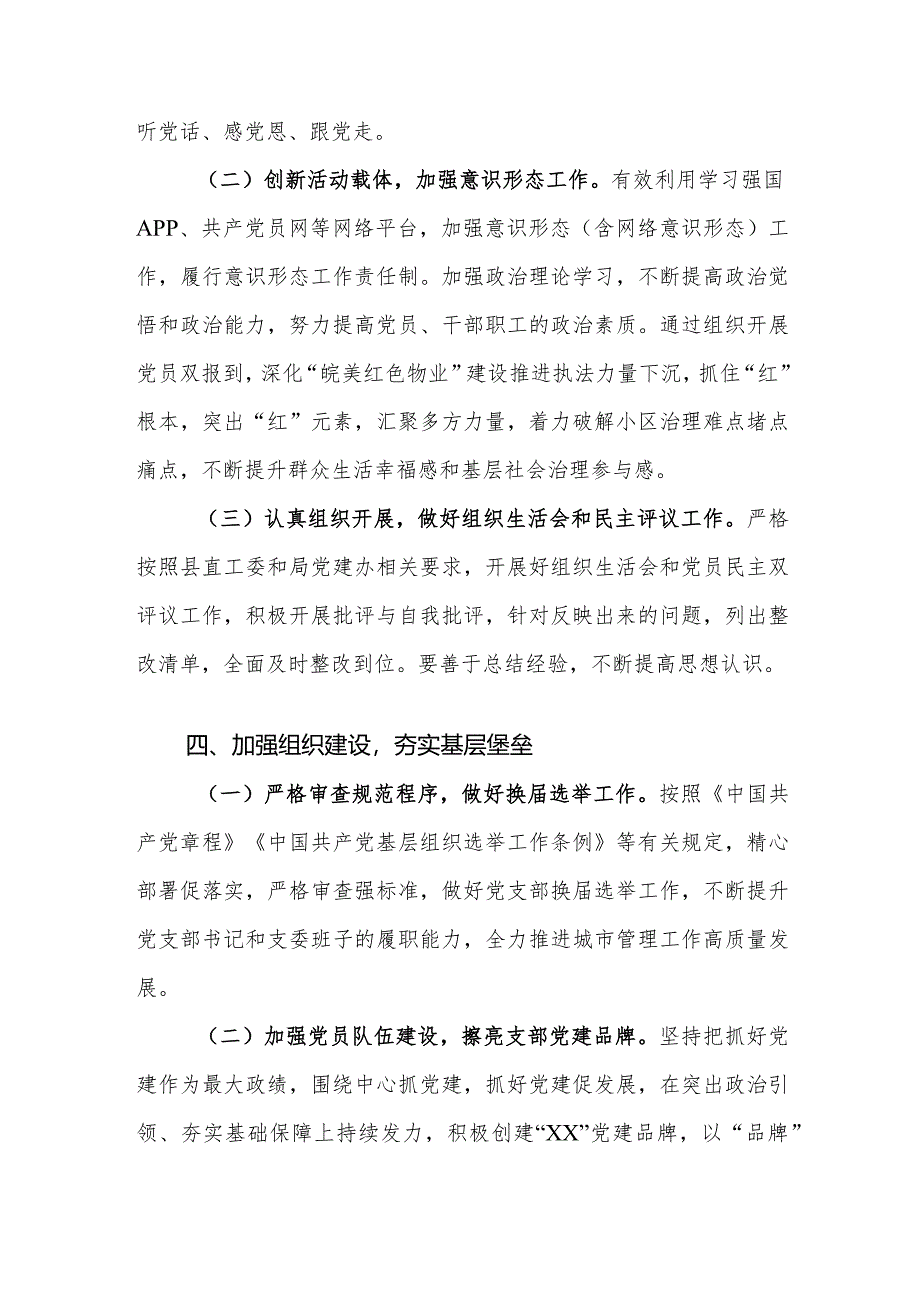 听党话、感党恩、跟党走。
（二）创新活动载体，加强意识形态工作。有效利用学习强国
APP、共产党员网等网络平台，加强意识形态（含网络意识形态）工
作，履行意识形态工作责任制。加强政治理论学习，不断提高政治觉
悟和政治能力，努力提高党员、干部职工的政治素质。通过组织开展
党员双报到，深化“皖美红色物业”建设推进执法力量下沉，抓住“红”
根本，突出“红”元素，汇聚多方力量，着力破解小区治理难点堵点
痛点，不断提升群众生活幸福感和基层社会治理参与感。
（三）认真组织开展，做好组织生活会和民主评议工作。严格
按照县直工委和局党建办相关要求，开展好组织生活会和党员民主双
评议工作，积极开展批评与自我批评，针对反映出来的问题，列出整
改清单，全面及时整改到位。要善于总结经验，不断提高思想认识。
四、加强组织建设，夯实基层堡垒
（一）严格审查规范程序，做好换届选举工作。按照《中国共
产党章程》《中国共产党基层组织选举工作条例》等有关规定，精心
部署促落实，严格审查强标准，做好党支部换届选举工作，不断提升
党支部书记和支委班子的履职能力，全力推进城市管理工作高质量发
展。
（二）加强党员队伍建设，擦亮支部党建品牌。坚持把抓好党
建作为最大政绩，围绕中心抓党建，抓好党建促发展，在突出政治引
领、夯实基础保障上持续发力，积极创建“XX”党建品牌，以“品牌”